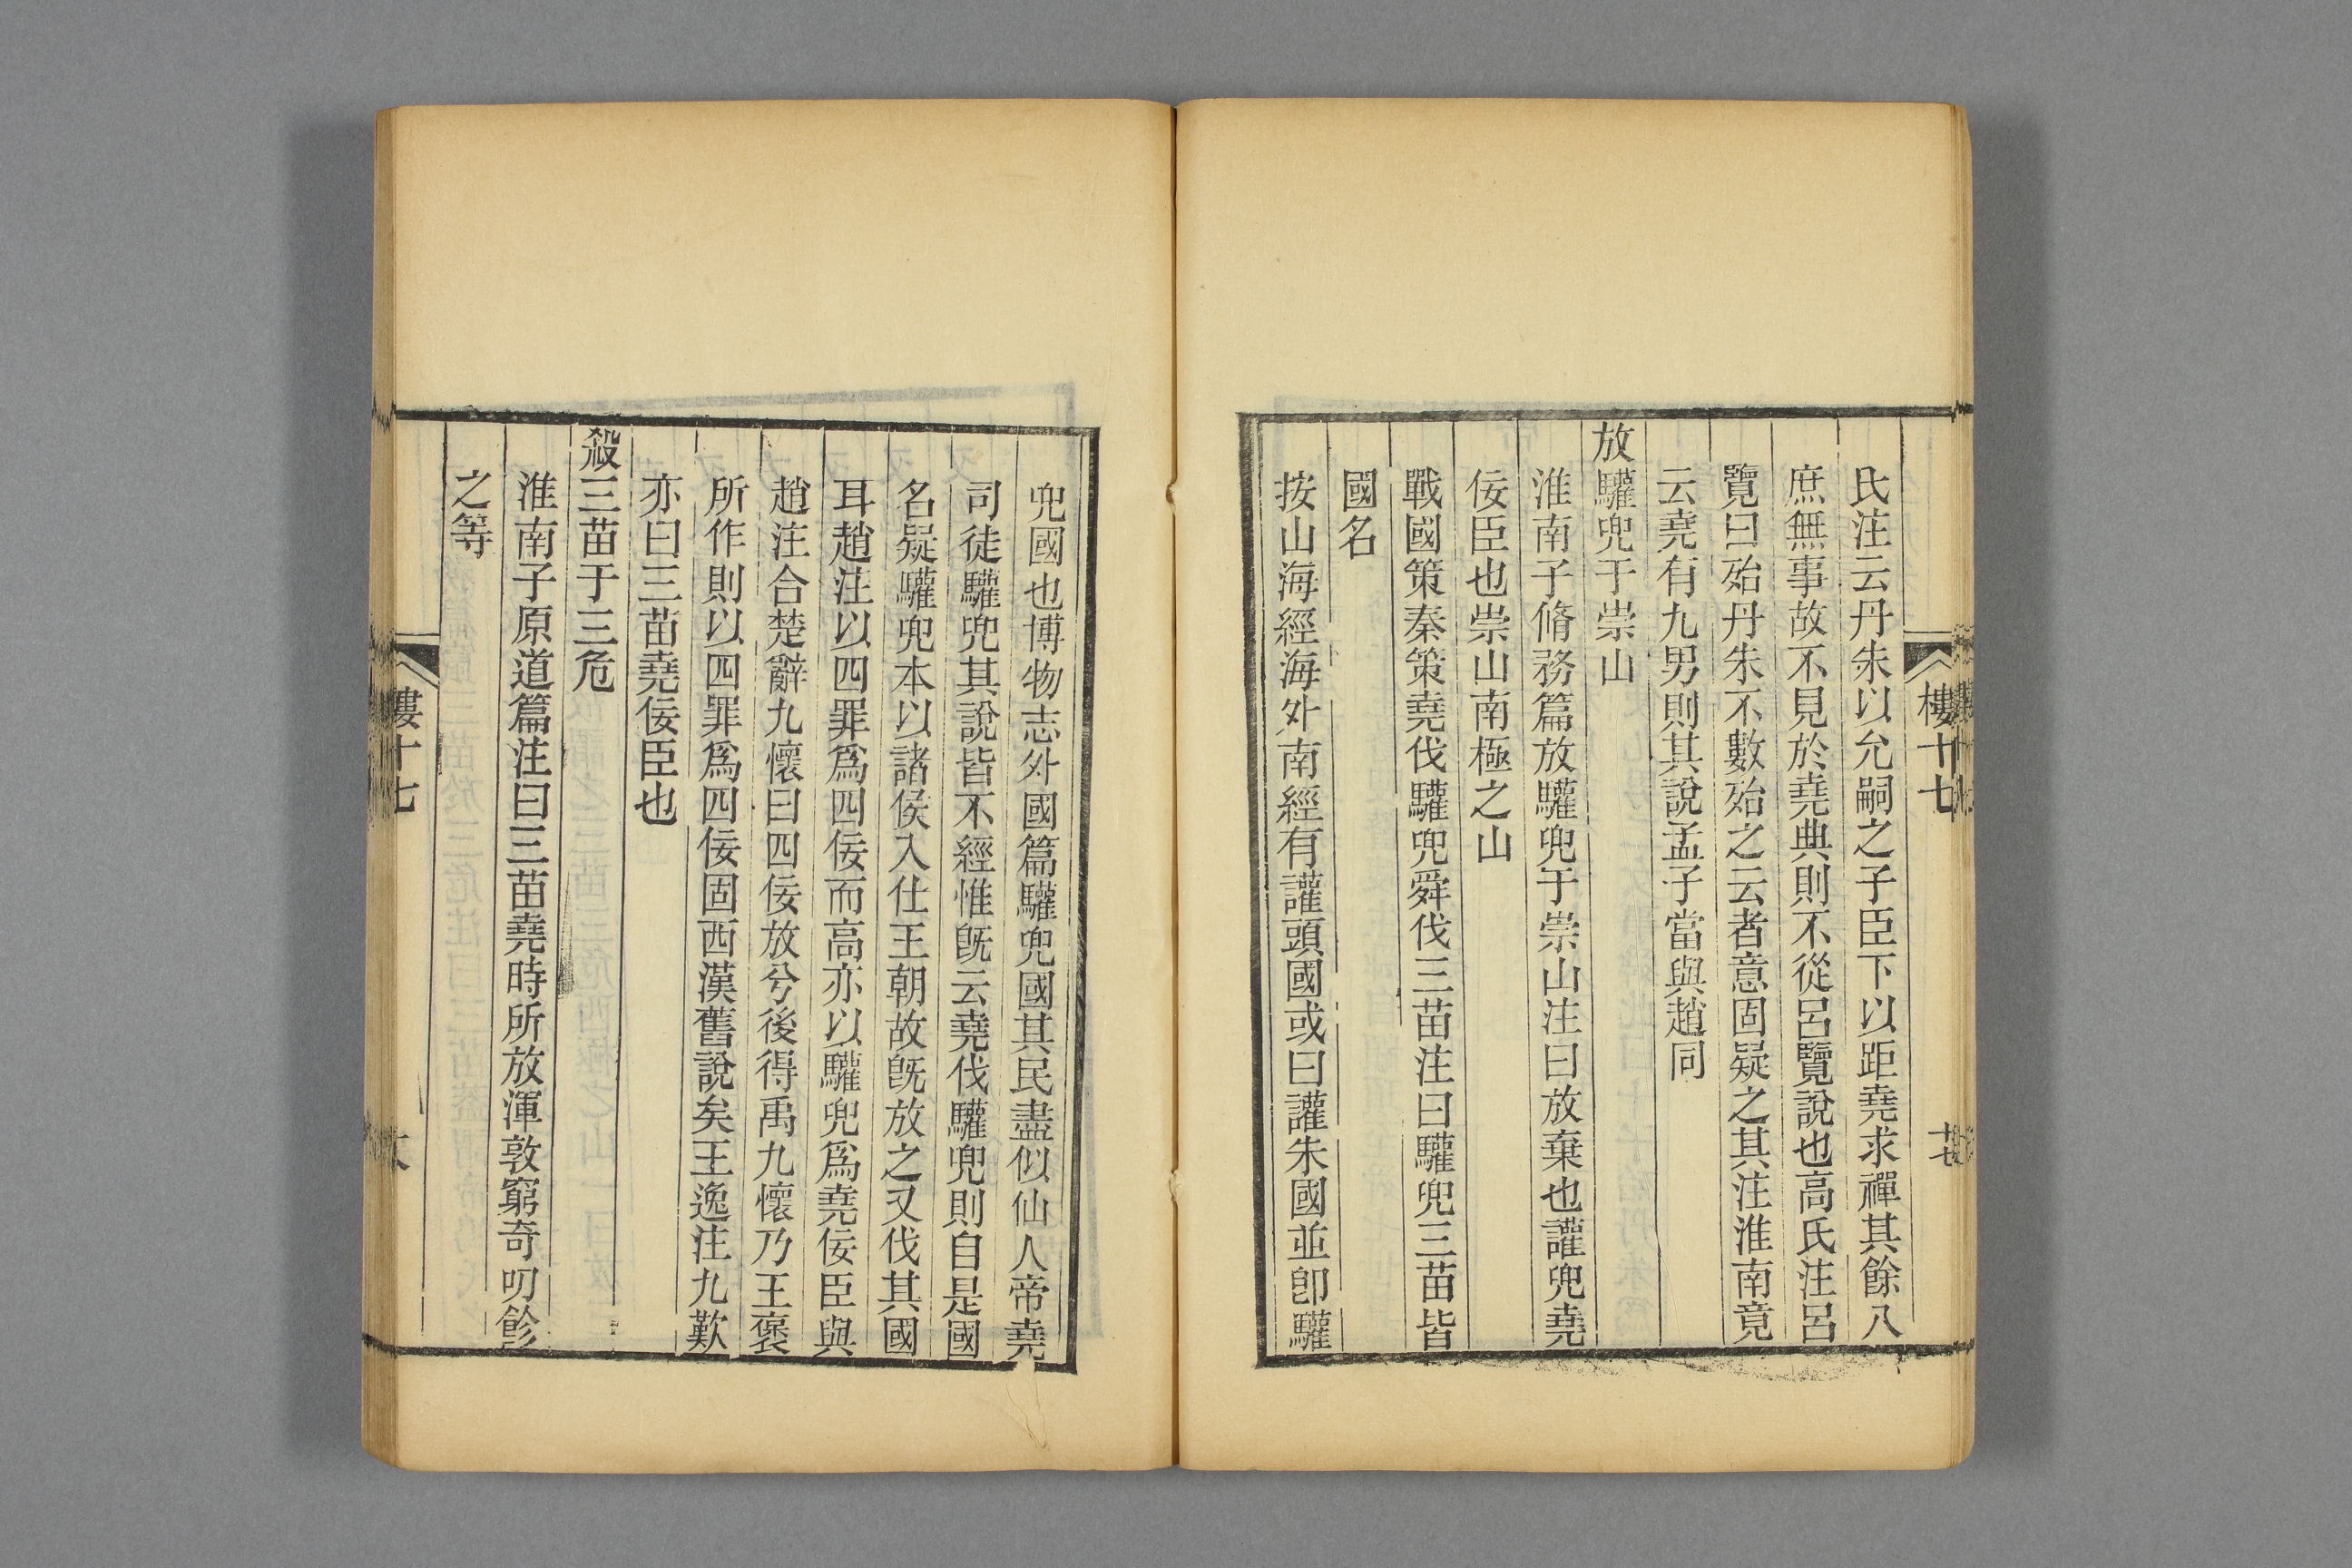 樓十七
十七
氏注云丹朱以允嗣之子臣下以距堯求禪其餘八
庶無事故不見於堯典則不從呂覽說也高氏注呂
覽曰殆丹朱不數殆之云者意固疑之其注淮南竟
云堯有九男則其說孟子當與趙同
放驩兜于崇山
淮南子脩務篇放驩兜于崇山注曰放棄也讙兜堯
佞臣也崇山南極之山
戰國策秦策堯伐驩兜舜伐三苗注曰驩兜三苗皆
國名
按山海經海外南經有讙頭國或曰讙朱國並卽驩
兜國也博物志外國篇驩兜國其民盡似仙人帝堯
司徒驩兜其說皆不經惟旣云堯伐驩兜則自是國
名疑驩兜本以諸侯入仕王朝故旣放之又伐其國
耳趙注以四罪爲四佞而高亦以驩兜爲堯佞臣與
趙注合楚辭九懷曰四佞放兮後得禹九懷乃王褒
所作則以四罪爲四佞固西漢舊說矣王逸注九歎
亦曰三苗堯佞臣也
殺三苗于三危
淮南子原道篇注曰三苗堯時所放渾敦窮奇叨餮
之等
樓十七